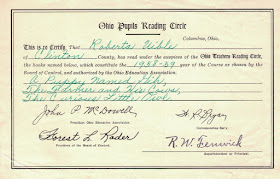 Ohio Pupils Reading Circle
Columbus, Ohio,
This is to Certify, That Roberta Uible
of Clinton County, has read under the auspices of the Ohio Teachers Reading Circle,
the books named below, which constitute the 1958-59 year of the Course as chosen by the
Board of Control, and authorized by the Ohio Education Association.
A Puppy Named Gih,
The Farmer and His Cows,
The Curious Little Owl.
John P McDowell
President Ohio Education Association
Forest L. Rader
President of the Board of Control.
Corr. Secretary
R.W. Fenwick
Superintendent or Principal.